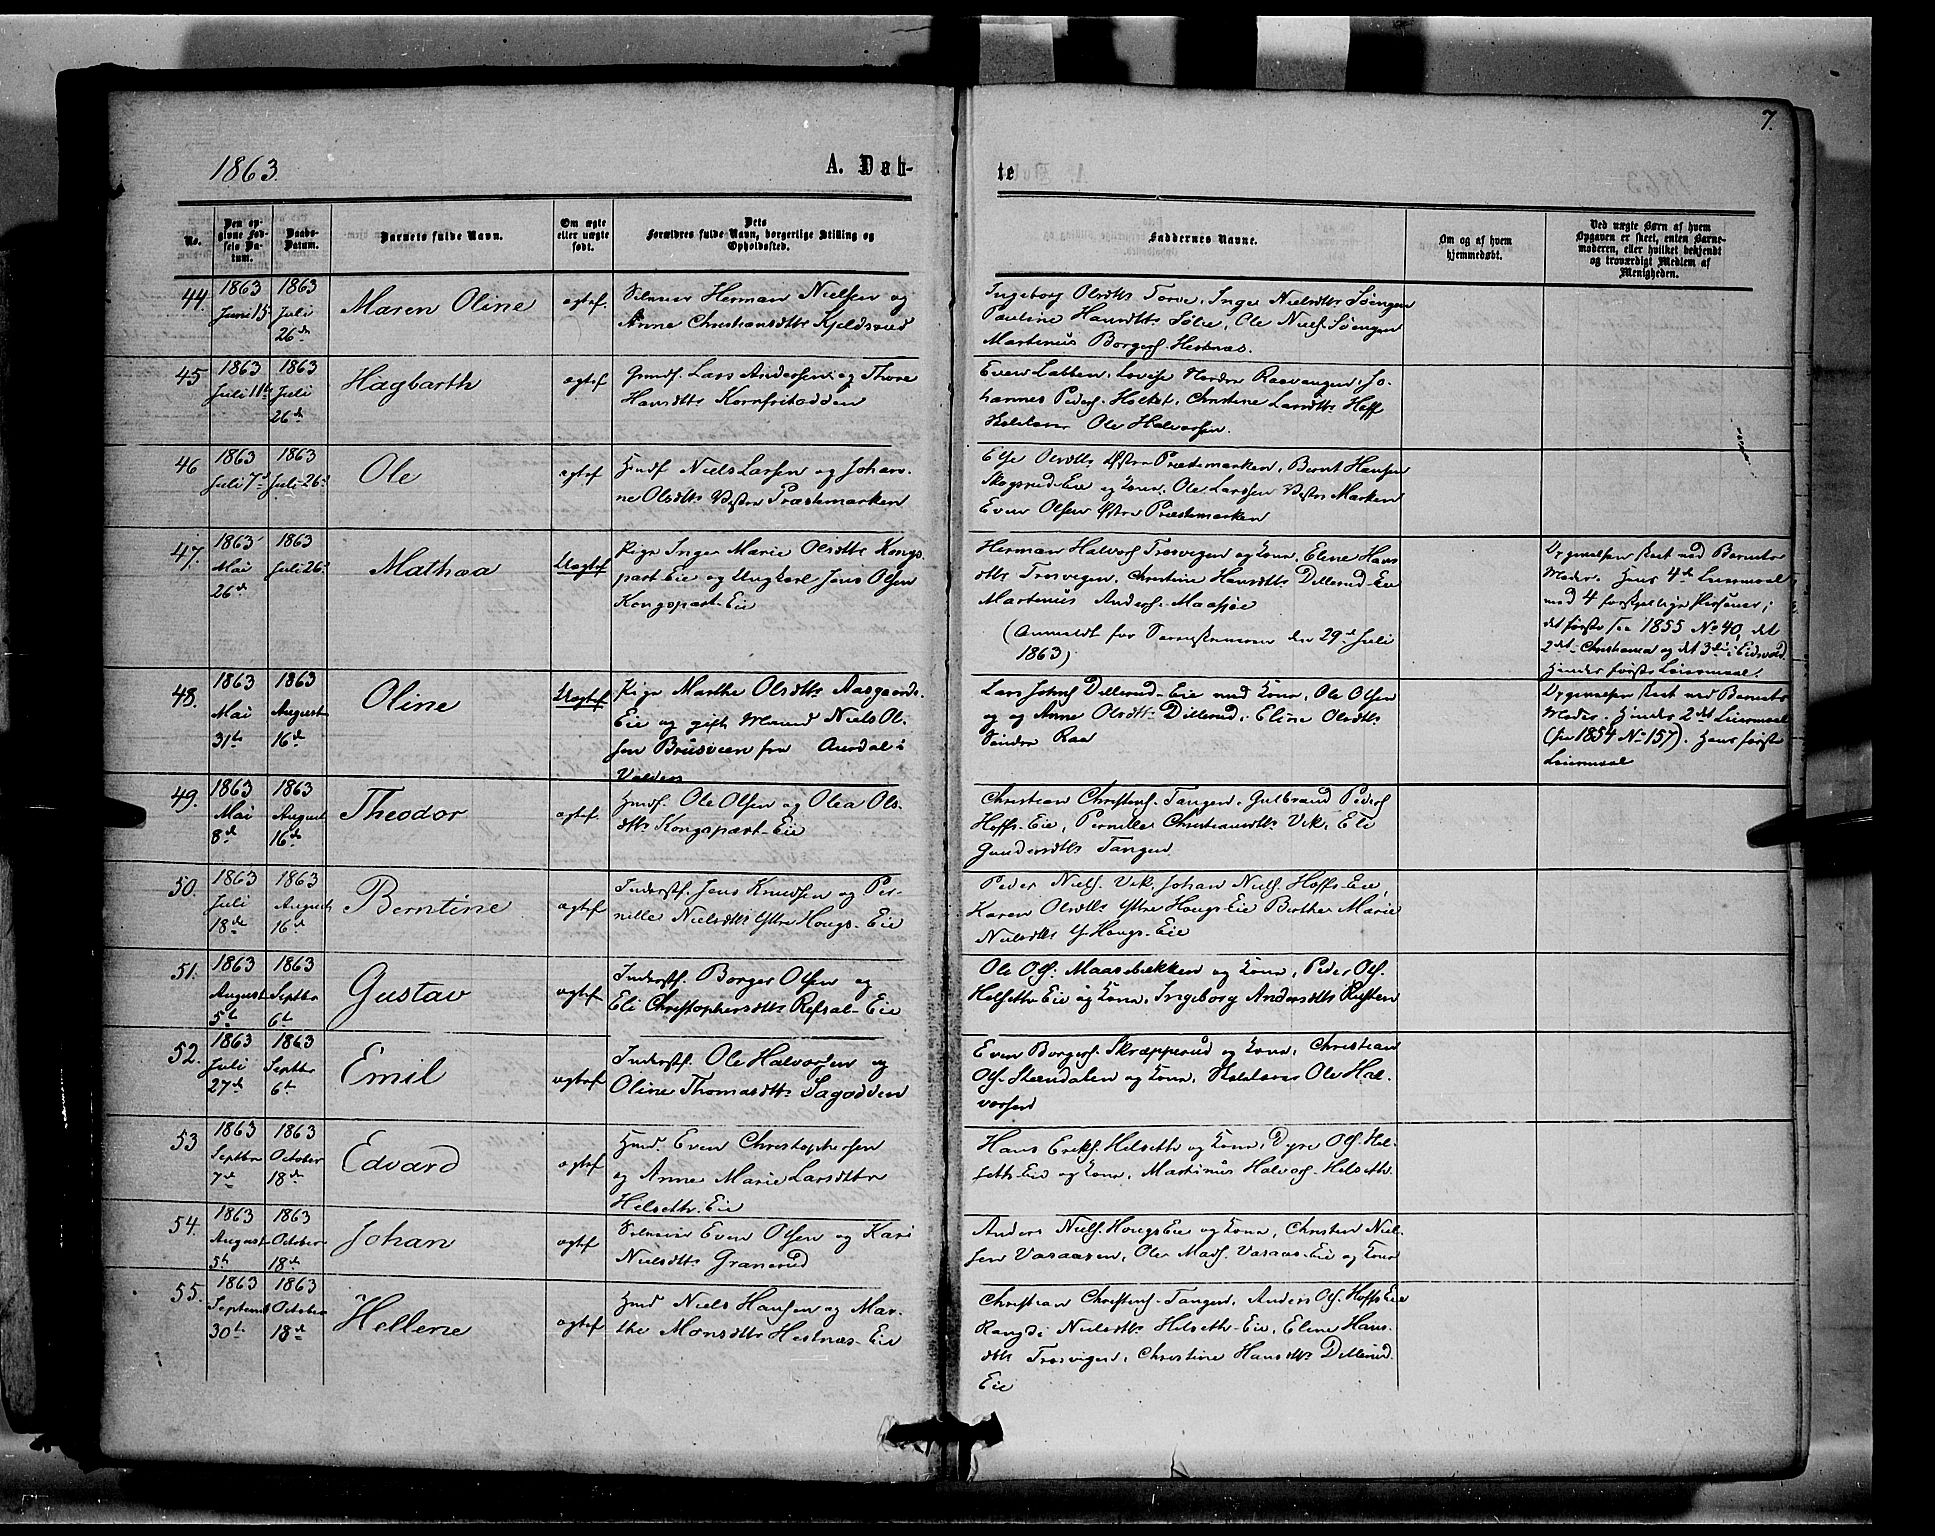 7.
1863. A. Døb- te
No.
Den opgivne Fødsels Datum.
Daabs-Datum.
Barnets fulde Navn.
Om ægte eller uægte født.
Dets Forældres fulde Navn, borgerlige Stilling og Opholdssted.
Faddernes Navne.
Om og af hvem hjemmedøbt.
Ved uægte Børn af hvem Opgaven er skeet, enten Barnemoderen, eller hvilket bekjendt og troværdigt Medlem af Menigheden.
44. 1863 Juni 15 1863 Juli 26de Maren Oline ægtef.
Herman Nielsen og
Anne Christiansdtr Kjeldsrud
Ingeborg Olsdtr Torve, Inger Nielsdtr Søengen
Pauline Hansdtr Sølie, Ole Niels. Søengen
Martinus Borgers. Hestnæs.
45 1863 Juli 11te 1863 Juli 26de Hagbarth ægtef
Lars Andersen og Thore
Hansdtr Kornfritodden
Even Labben, Lovise Raavangen, Jo-
hannes Peders. Holtet, Christine Larsdtr Hoff
Ole Halvorsen.
46 1863 Juli 7de 1863 Juli 26de Ole ægtef
Huusf. Niels Larsen og Johan-
ne Olsdtr Vestre Præstemarken
Else Olsdtr Østre Præstemarken, Bernt Hansen
Skogsrud-Eie og Kone, Ole Larssen Vestre Marken
Even Olsen Østre Præstemarken
47. 1863 Mai 26de 1863 Juli 26de Mathea Uægtef
Pige Inger Marie Olsdtr Kongs-
part-Eie og Ungkarl Jens Olsen
Kongspart-Eie
Herman Halvors. Trosvigen og Kone, Eline Hans
dtr Trosvigen, Christine Hansdtr Dillerud-Eie
Martinus Anders. Maasjøe
(Anmeldt for den 29de Juli
1863)
Opgivelsen skeet ved Barnets
Moder. Hans 4de Leiermaal
med 4 forskjellige Personer;
det første see 1855 No 40, det
2det Christiania og det 3die i Eidsvold.
Hendes første Leiermaal.
48. 1863 Mai 31te 1863 August 16de Oline Uægtef
Pige Marthe Olsdtr Aasgaards-
Eie og gift Mand Niels Ol-
sen Brusveen fra Aurdal i
Valders
Lars Johns. Dillerud-Eie med Kone, Ole Olsen
og og Anne Olsdtr Dillerud, Eline Olsdtr
Søndre Raa
Opgivelsen skeet ved Barnets
Moder. Hendes 2det Leiermaal
(see 1854 No 157). Hans første
Leiermaal
49. 1863 Mai 8de 1863 August 16de Theodor ægtef.
Huusf. Ole Olsen og Olea Ols-
dtr Kongspart-Eie
Christian Christens. Tangen, Gulbrand Peders
Hoffs-Eie, Pernille Christiansdtr Vik, Eli
Gundersdtr Tangen
50. 1863 Juli 18de 1863 August 16de Berntine ægtef
Inderstf. Jens Knudsen og Per-
nille Nielsdtr Yttre Hougs-Eie
Peder Niels. Vik, Johan Niels. Hoffs-Eie,
Karen Olsdtr Yttre Hougs-Eie Berthe Marie
Nielsdtr Y. Hougs-Eie
51. 1863 August 5te 1863 Septbr 6te Gustav ægtef
Inderstf. Borger Olsen og
Eli Christophersdtr Refsal-Eie
Ole Ols. Maasebækken og Kone, Peder Ols.
Helseth-Eie og Kone, Ingeborg Andersdtr Rusten
52. 1863 Juli 27de 1863 Septbr 6te Emil ægtef
Inderstf. Ole Halvorsen og
Oline Thomasdtr Sagodden
Even Borgers. Skræpperud og Kone, Christian
Ols. Steendalen og Kone, Ole Hal-
vorsen
53 1863 Septbr 7de 1863 October 18de Edvard ægtef
Huusf. Even Christophersen
og Anne Marie Larsdtter
Helseth-Eie
Hans Eriks. Helseth og Kone, Dyre Ols. Hel-
seth-Eie og Kone, Martinus Halvors. Helseth
54. 1863 August 5te 1863 October 18de Johan ægtef
Even Olsen og Kari
Nielsdtr Granerud
Anders Niels. Hougs Eie og Kone, Christen Niel-
sen Vasaasen, Ole Mads. Vasaas-Eie og Kone
55. 1863 Septemb 30te 1863 October 18de Hellene ægtef
Huusf. Niels Hansen og Mar-
the Monsdtr Hestnæs-Eie
Christian Christens. Tangen, Anders Ols. Hoffs Eie
Rangdi Nielsdtr Helseth-Eie, Eline Hans-
dtr Trosvigen, Christine Hansdtr Dillerud.
Eie